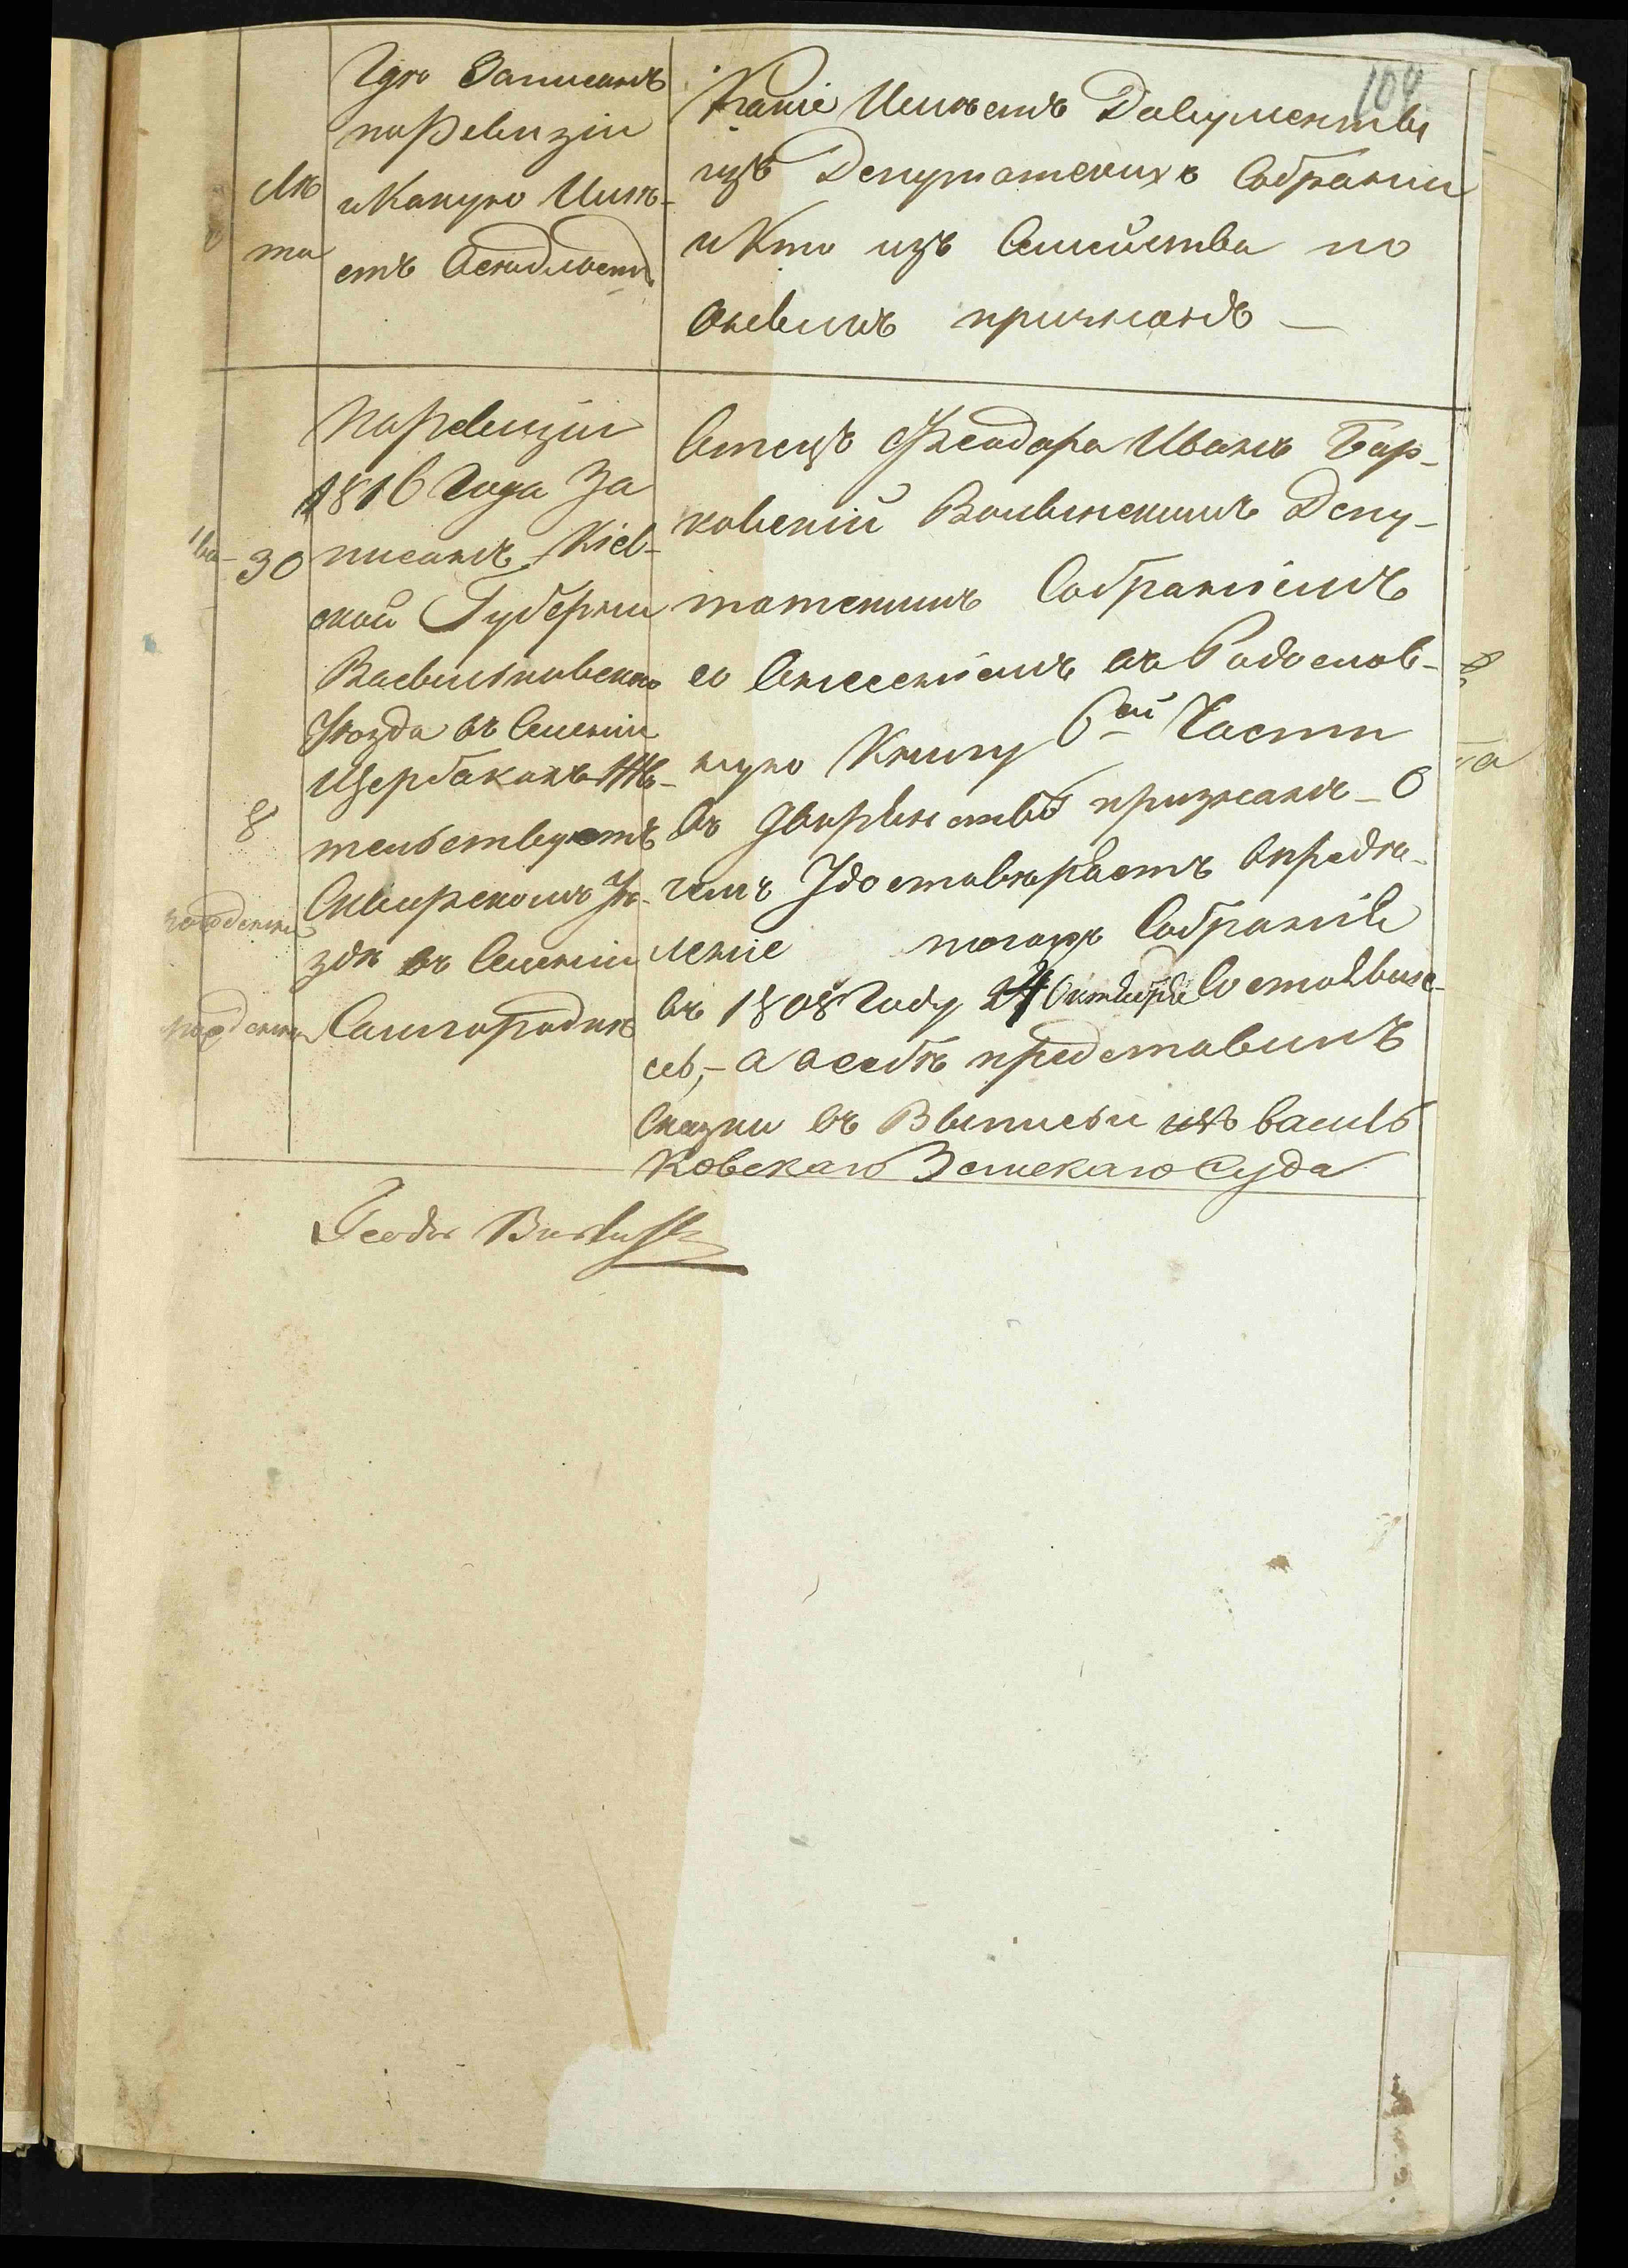 109
Лѣ
та
Гдѣ Записанъ
по Ревизіи
и Какую Имѣ-
етъ Осѣдлость
Какіе Имѣетъ Довументы
изъ Депутатскихъ Собраніи
и Кто изъ Семейства по
онымъ признанъ —
30
8
рожденія
рожденія
По Ревизіи
1816 Года За
писанъ Кіев-
ской Губерніи
Васильковскаго
Уѣзда въ Селеніи
Щербакахъ Жи-
тельствуетъ
Сквирскомъ Уѣ-
здѣ въ Селеніи
Самгородкѣ
Отецъ Феодора Иванъ Бар-
ковскій Волынскимъ Депу-
татскимъ Собраніемъ
со Внесеніемъ въ Родослов-
ную Книгу 6ей Части
въ дворянствѣ признанъ — О
чемъ Удостовѣряетъ Опредѣ-
леніе тогожъ Собранія
въ 1808 Году 24 Октября Состоявшее-
ся, — а о себѣ представилъ
Сказки въ Выписьи изъ Василь
Ковскаго Земскаго Суда
Teodor